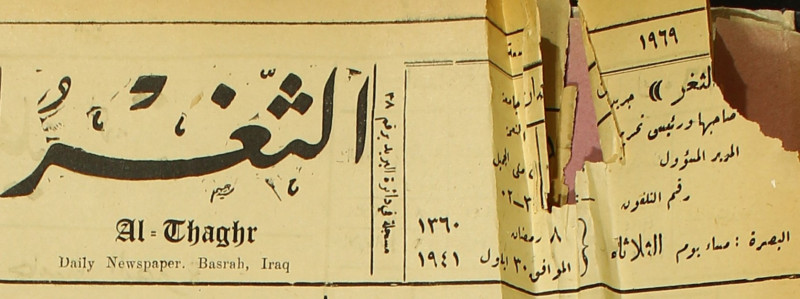 ١٩٦٩
الثغر
الثغر «
صاحبها ورئيس تحرير
المدير المسؤول
رقم التلفون
البصرة : مساء يوم الثلاثاء
٨ رمضان ١٣٦٠
الموافق ٣٠ ايلول ١٩٤١
مسجلة في دائرة البريد برقم ٣٨
Al-Thaghr
Daily Newspaper. Basrah, Iraq